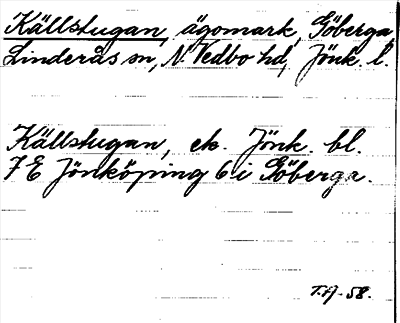 Källstugan, ägomark, Göberga,
Linderås sn, N. Vedbo hd, Jönk. l.
Källstugan, ek. Jönk. bl.
7 E Jönköping 6 i Göberga.
T.A. 58.